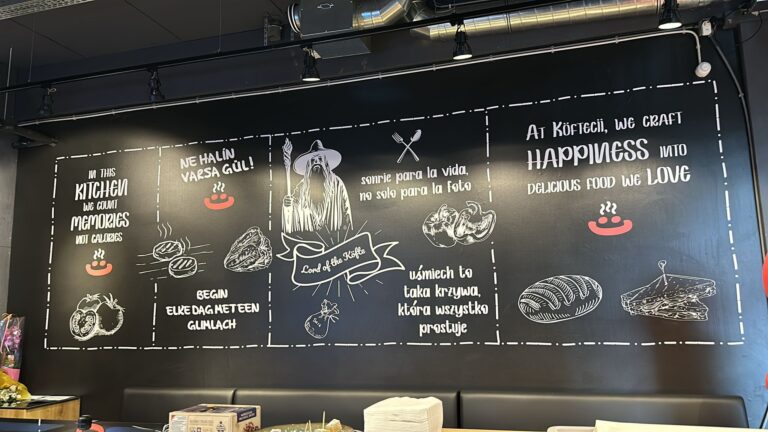 IN THIS
KITCHEN
WE COUNT
MEMORIES
NOT CALORIES
NE HALİN
VARSA GÜL!
BEGIN
ELKE DAG MET EEN
GLIMLACH
Lord of the Köfte
sonríe para la vida,
no solo para la foto
uśmiech to
taka krzywa,
która wszystko
prostuje
At Köftecii, we craft
HAPPINESS into
delicious food we LOVE